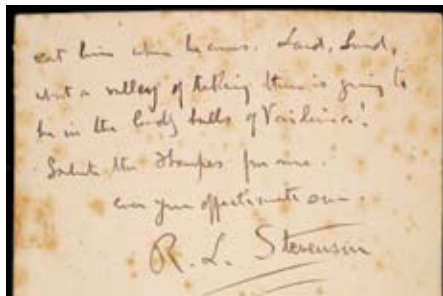 eat him when he comes. Lord, Lord,
what a valley of talking there is going to
be in the lordly halls of Vailima!
Salute the for me.
ever your affectionate son.
R. L. Stevenson